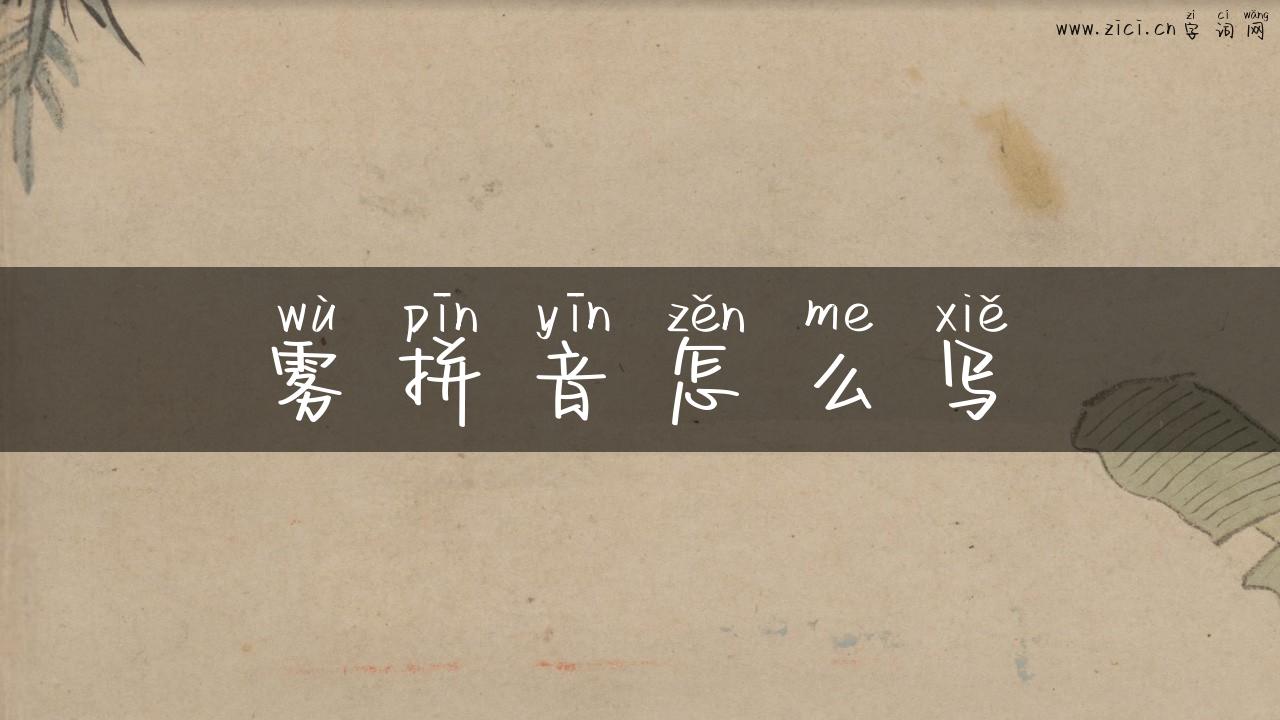 zì cí wǎng
www.zici.cn 字 词 网
wù pīn yīn zěn me xiě
雾 拼 音 怎 么 写